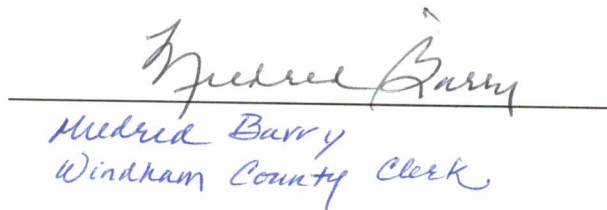 Mildred Barry
Mildred Barry
Windham County Clerk